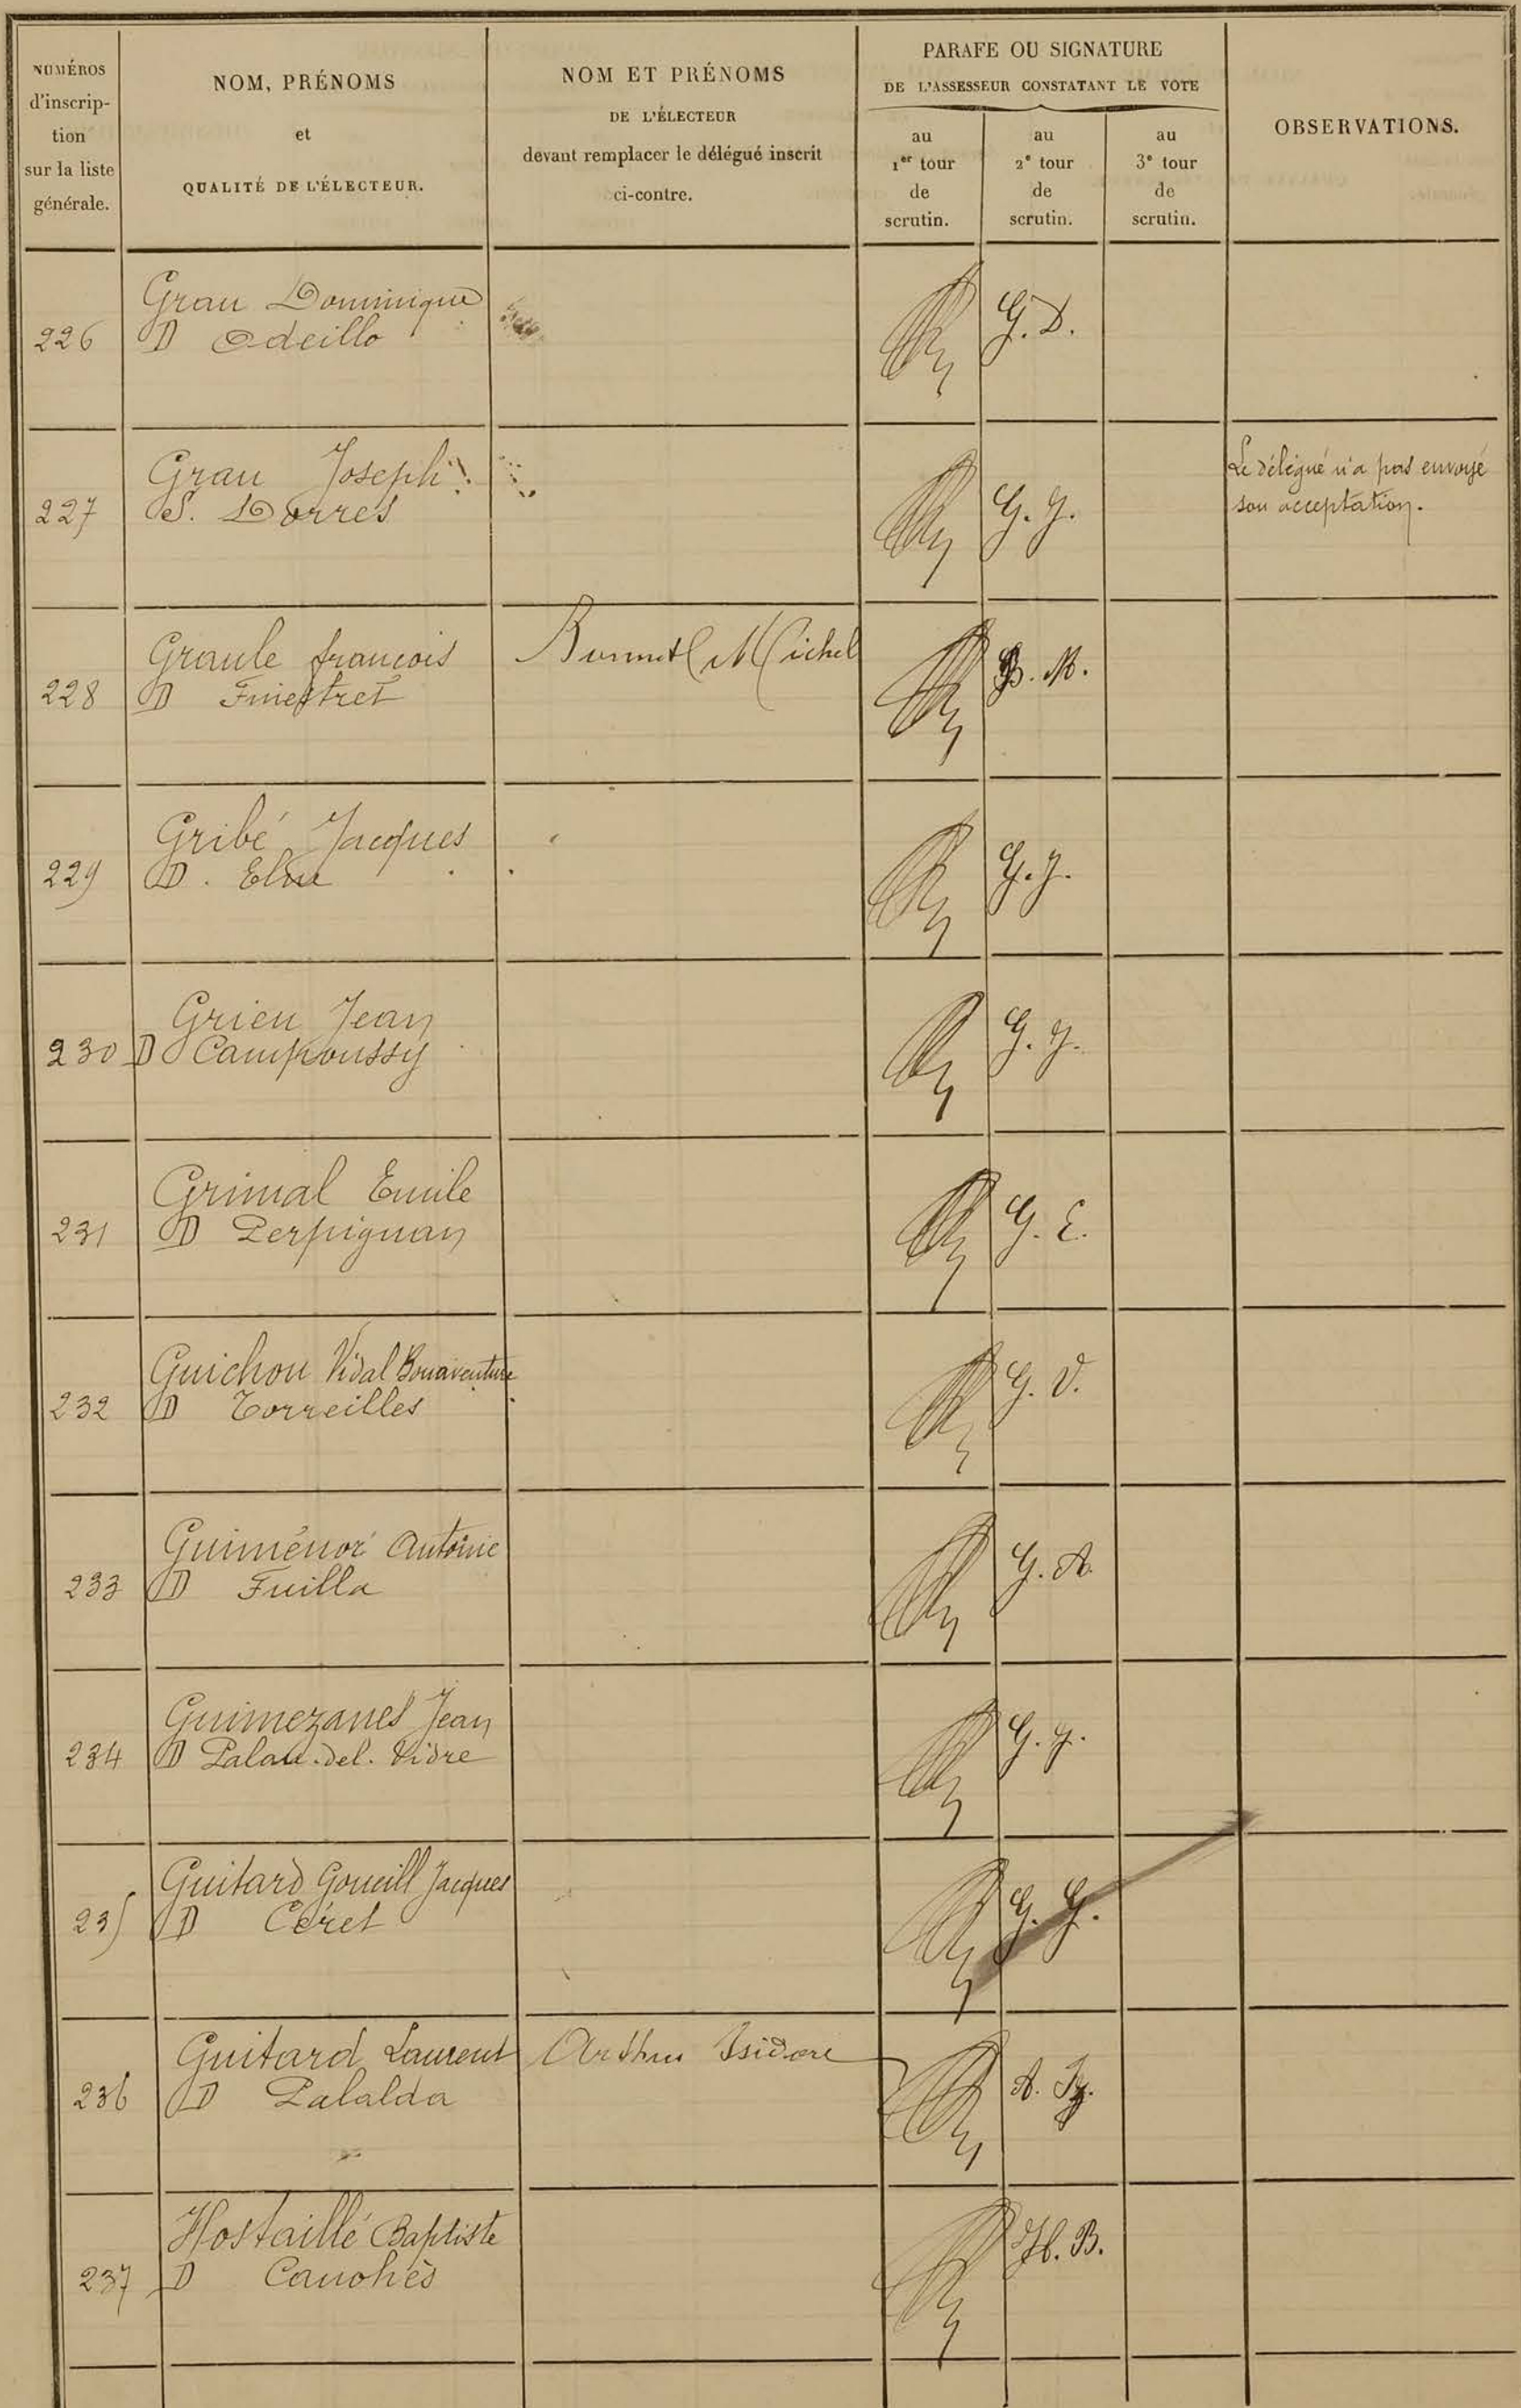 NUMÉROS
d'inscrip-
tion
sur la liste
générale.
NOM, PRÉNOMS
et
QUALITÉ DE L'ÉLECTEUR.
NOM ET PRÉNOMS
DE L'ÉLECTEUR
devant remplacer le délégué inscrit
ci-contre.
PARAFE OU SIGNATURE
DE L'ASSESSEUR CONSTATANT LE VOTE
au
1er tour
de
scrutin.
au
2e tour
de
scrutin.
au
3e tour
de
scrutin.
OBSERVATIONS.
Grau Dominique
226 D Odeillo G. D.
Grau Joseph
227 S. Dorres G. J.
Le délégué n'a pas envoyé
son acceptation.
Graule francois Bonnet Michel
228 D Finestret B. M.
Gribé Jacques
229 D. Elne G. J.
Grieu Jean
230 D Campoussy G. J.
Grimal Emile
231 D Perpignan G. E.
Guichou Vidal Bonaventure
232 D Torreilles G. V.
Antoine
233 D Fuilla G. A.
Guimezanes Jean
234 D Palau-del-Vidre G. J.
Guitard Goueill Jacques
235 D Céret G. G.
Guitard Laurent Arthus Isidore
236 D Palalda A.
Hostaillé Baptiste
237 D Canohès H. B.